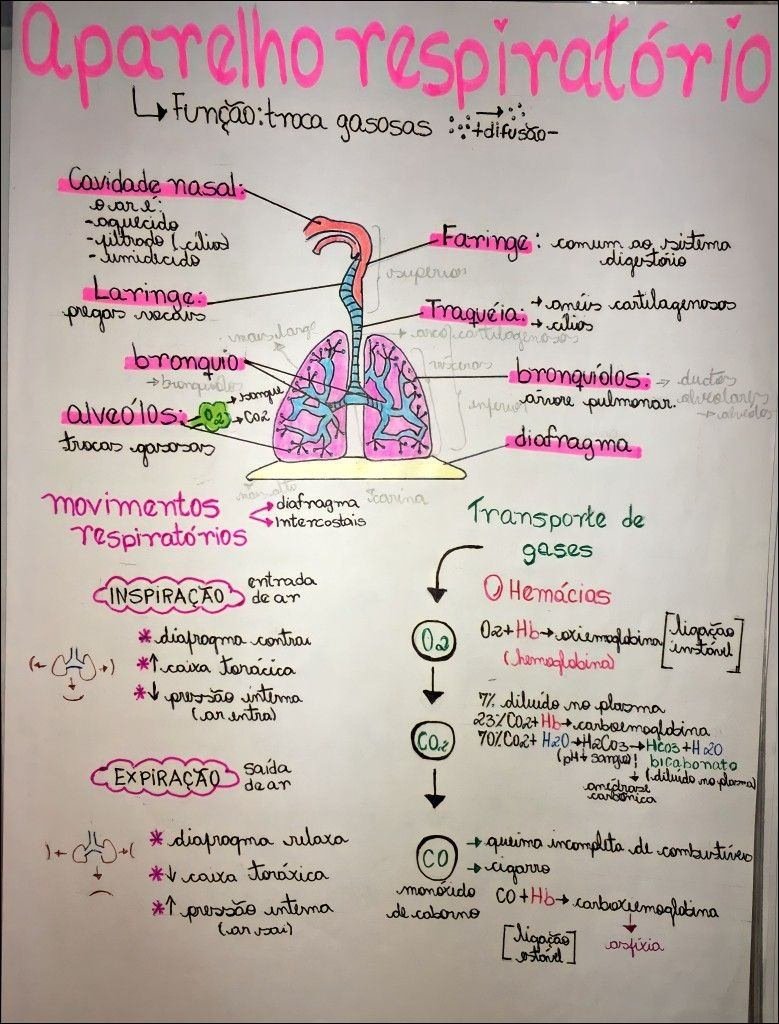 Aparelho respiratório
↳ Função: troca gasosas → +difusão-
Cavidade nasal:
o ar é:
- aquecido
- filtrado (cílios)
- umidecido
Faringe: comum ao sistema
digestório
superior
Laringe:
pregas vocais
Traquéia: → anéis cartilagenosos
→ cílios
mais largo
→ arco/cartilagenosos
bronquio
→ bronquíolos
bronquíolos: → ductos
alveolares
→ alvéolos
árvore pulmonar.
inferior
alveólos: O2 → sangue
→ CO2
trocas gasosas
diafragma
carina
movimentos
respiratórios
→ diafragma
→ Intercostais
INSPIRAÇÃO entrada
de ar
* diafragma contrai
*↑ caixa torácica
*↓ pressão interna
(ar entra)
EXPIRAÇÃO saída
de ar
* diafragma relaxa
*↓ caixa toráxica
*↑ pressão interna
(ar sai)
Transporte de
gases
Hemácias
O2
O2 + Hb → oxiemoglobina [ligação
instável]
(hemoglobina)
CO2
7% diluído no plasma
23% CO2 + Hb → carboemoglobina
70% CO2 + H2O → H2CO3 → HCO3 + H2O
(pH↓ sangue) bicabonato
↓ (diluído no plasma)
anidrase
carbônica
CO
→ queima incompleta de combustíveis
→ cigarro
monóxido
de caborno
CO + Hb → carboxiemoglobina
[ligação
estável]
asfixia